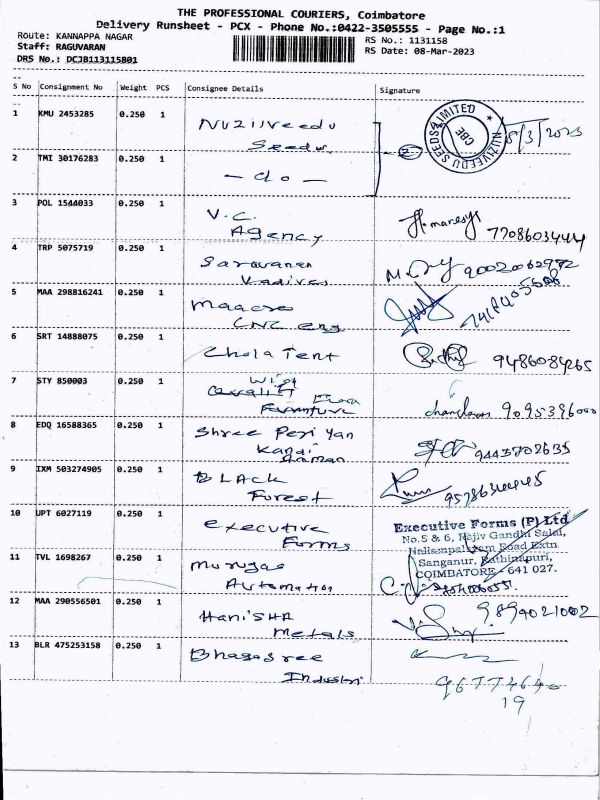 THE PROFESSIONAL COURIERS, Coimbatore
Delivery Runsheet - PCX - Phone No.:0422-3505555 - Page No.:1
Route: KANNAPPA NAGAR
RS No.: 1131158
Staff: RAGUVARAN
RS Date: 08-Mar-2023
DRS No.: DCJB113115801
S No Consignment No Weight PCS Consignee Details Signature
1 KMU 2453285 0.250 1 Nuziveedu
Seeds
NUZIVEEDU SEEDS LIMITED
CBE
8/3/2023
2 TMI 30176283 0.250 1 - do - 2
3 POL 1544033 0.250 1 V.C.
Agency
7708603444
4 TRP 5075719 0.250 1 Saravanan
9002062972
5 MAA 298816241 0.250 1
CNC eng
6 SRT 14888075 0.250 1 Chola Tent
9486084265
7 STY 850003 0.250 1
9095396000
8 EDQ 16588365 0.250 1 Shree Peri yan
Kandi
Amman
9443702635
9 IXM 503274905 0.250 1 BLACK
Forest
10 UPT 6027119 0.250 1 Executive
Forms
Executive Forms (P) Ltd
No.5 & 6, Rajiv Gandhi Salai,
Nallampalayam Road Extn.
Sanganur, Rathinapuri,
COIMBATORE - 641 027.
11 TVL 1698267 0.250 1 Murugas
Automation
12 MAA 290556501 0.250 1 HaniSHA
Metals
9894021002
13 BLR 475253158 0.250 1 Bhagasree
Industri
96774640
19